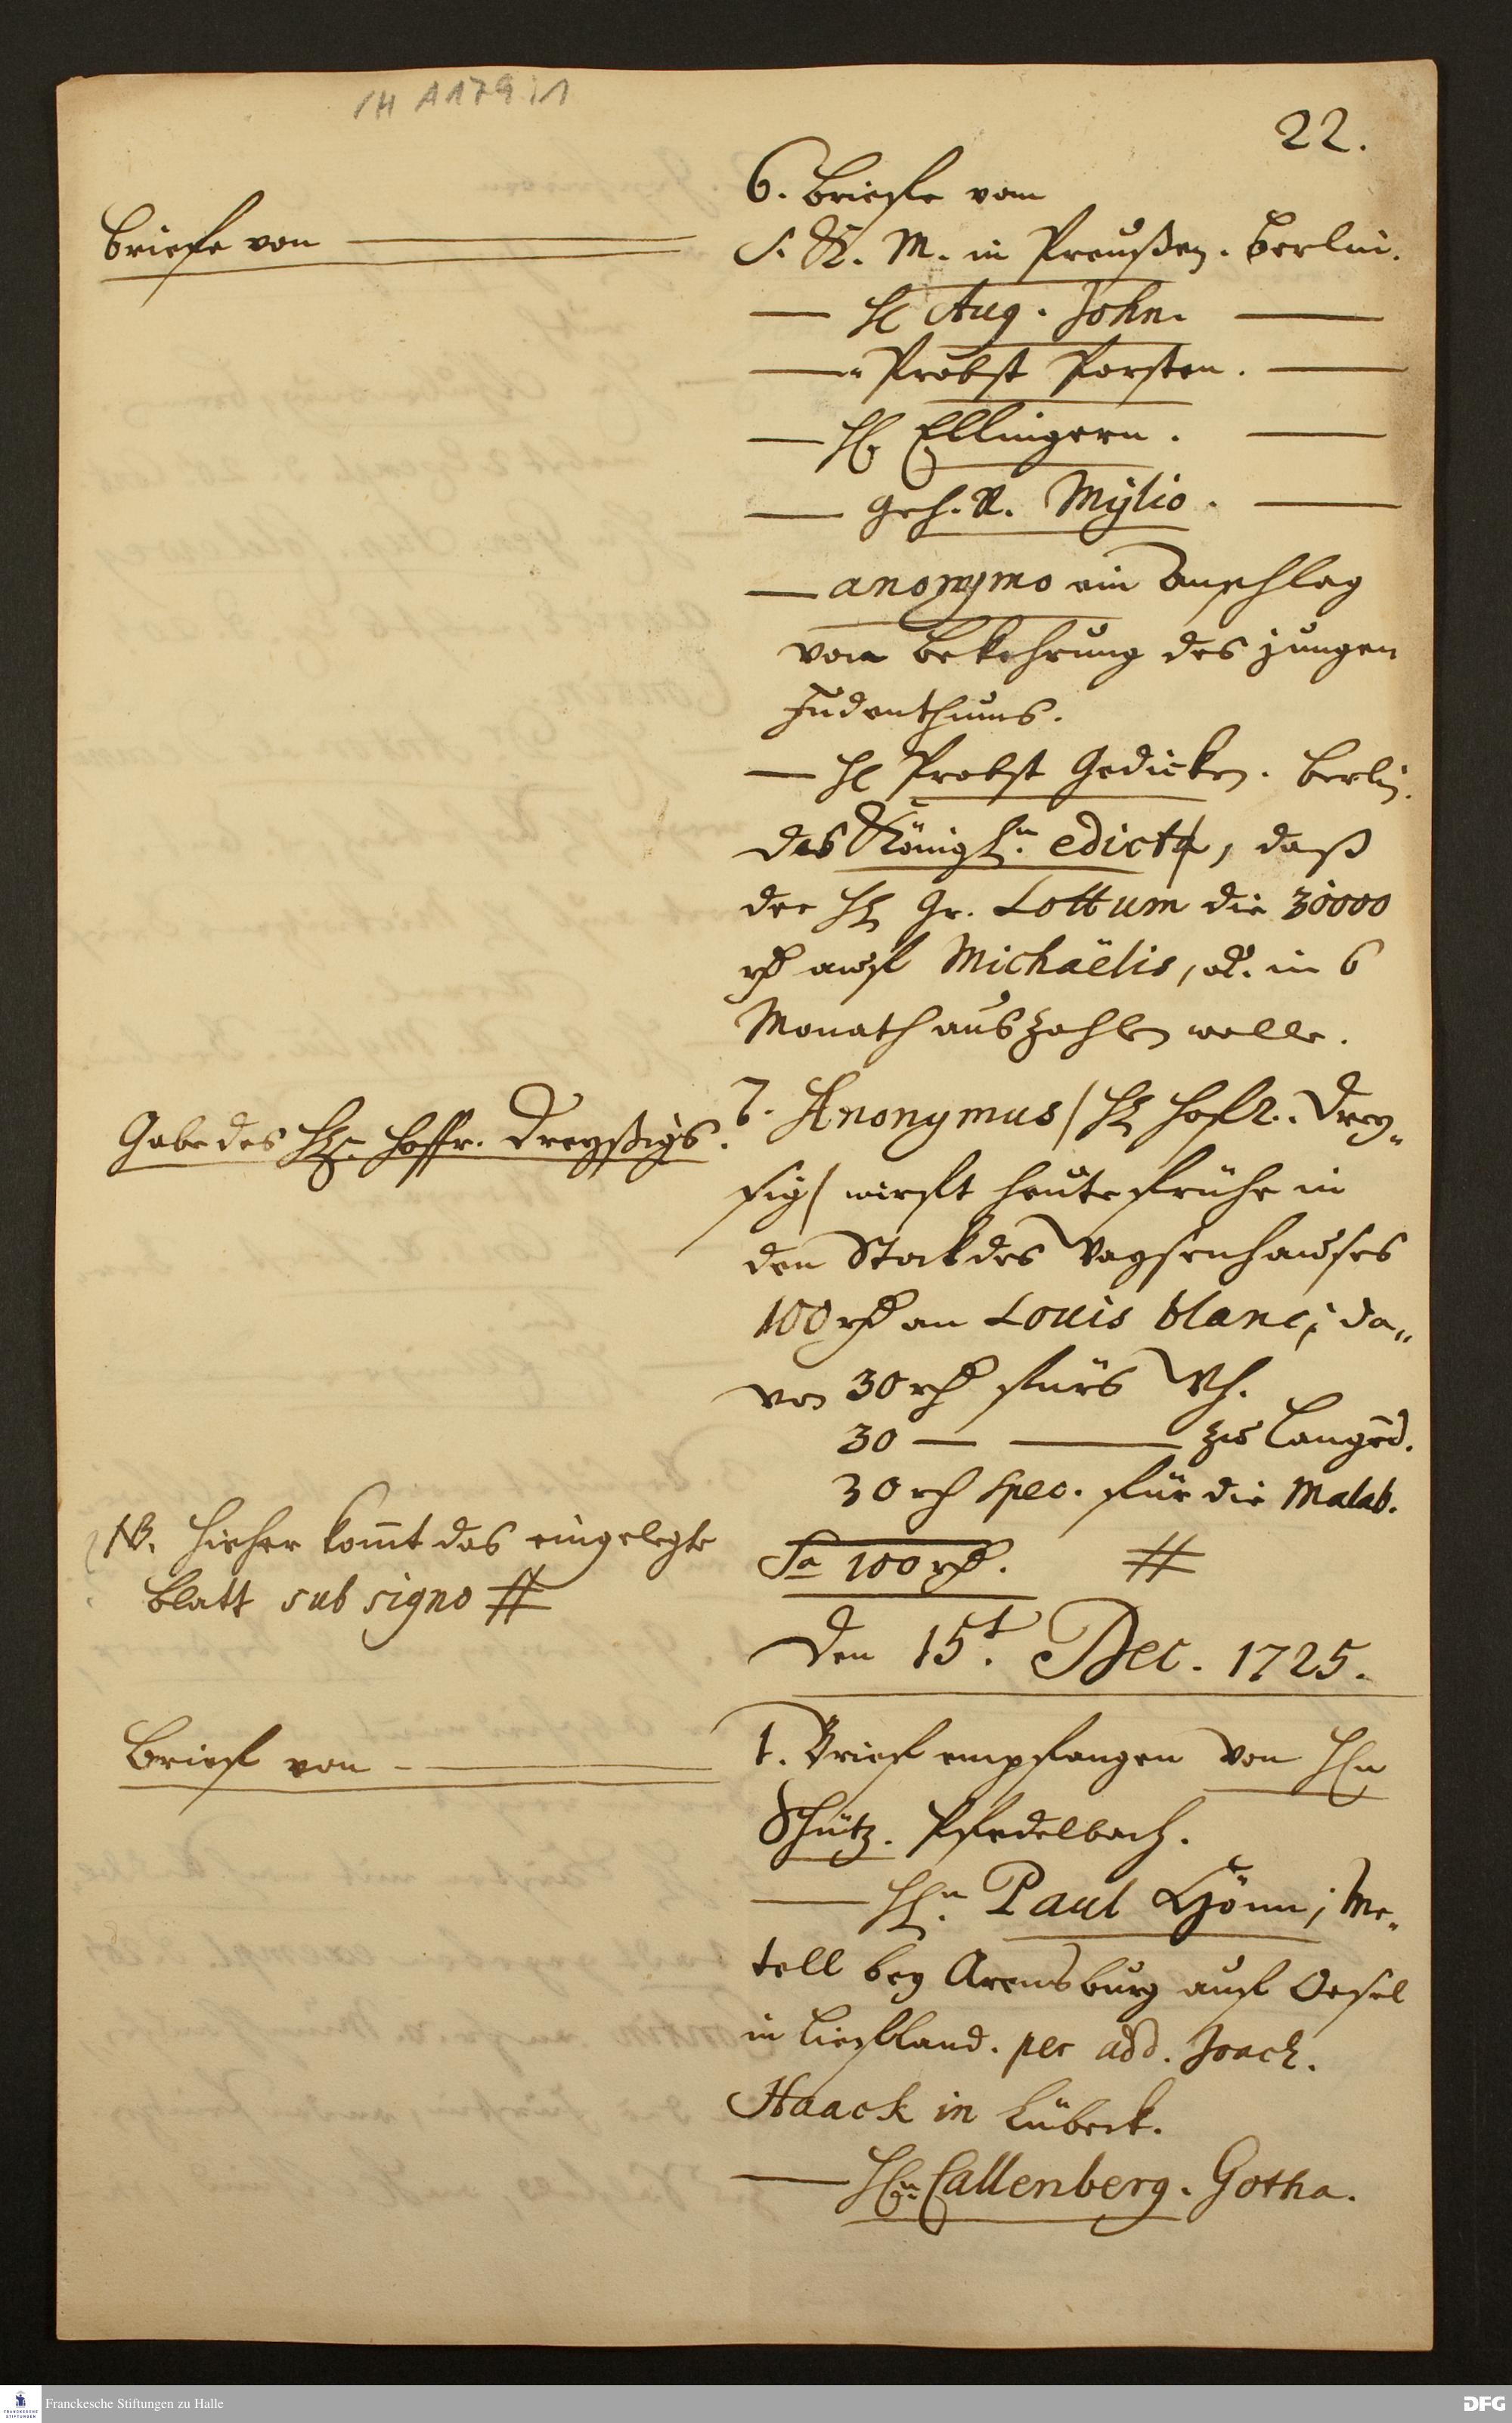 /H A179:1
22.
6. Briefe vom
Briefe von
S. K. M. in Preußen. Berlin.
— H Aug. John. —
— Probst Porsten. —
— H. Ellingern. —
— Geh. R. Mÿlio. —
— anonymo ein Anschlag
von Bekehrung des jungen
Judenthums.
— H Probst Gedicken. Berlin.
des Königl.n edicts, daß
der H. Gr. Lottum die 30000
rth auf Michaëlis, od. in 6
Monath auszahlen wolle.
Gabe des H. Hoffr. Dreyßigs.
7. Anonymus / H. Hofr. Drey„
sig / wirft heute frühe in
den Stock des Waysenhauses
100 rth an Louis blanc; da„
von 30 rth fürs Wh.
30 — — zu Langend.
30 rth spec. für die Malab.
NB. Hieher kom̄t das eingelegte
Blatt sub signo #
Sa 100 rth. #
Den 15.t Dec. 1725.
Brief von
1. Brief empfangen von Hn
Schütz. Pfedelbach.
— H.n Paul Hönn; Me„
tell bey Arensburg auf Oesel
in Liefland. per add. Joach.
Haack in Lübeck.
— H.n Callenberg. Gotha.
Franckesche Stiftungen zu Halle
DFG